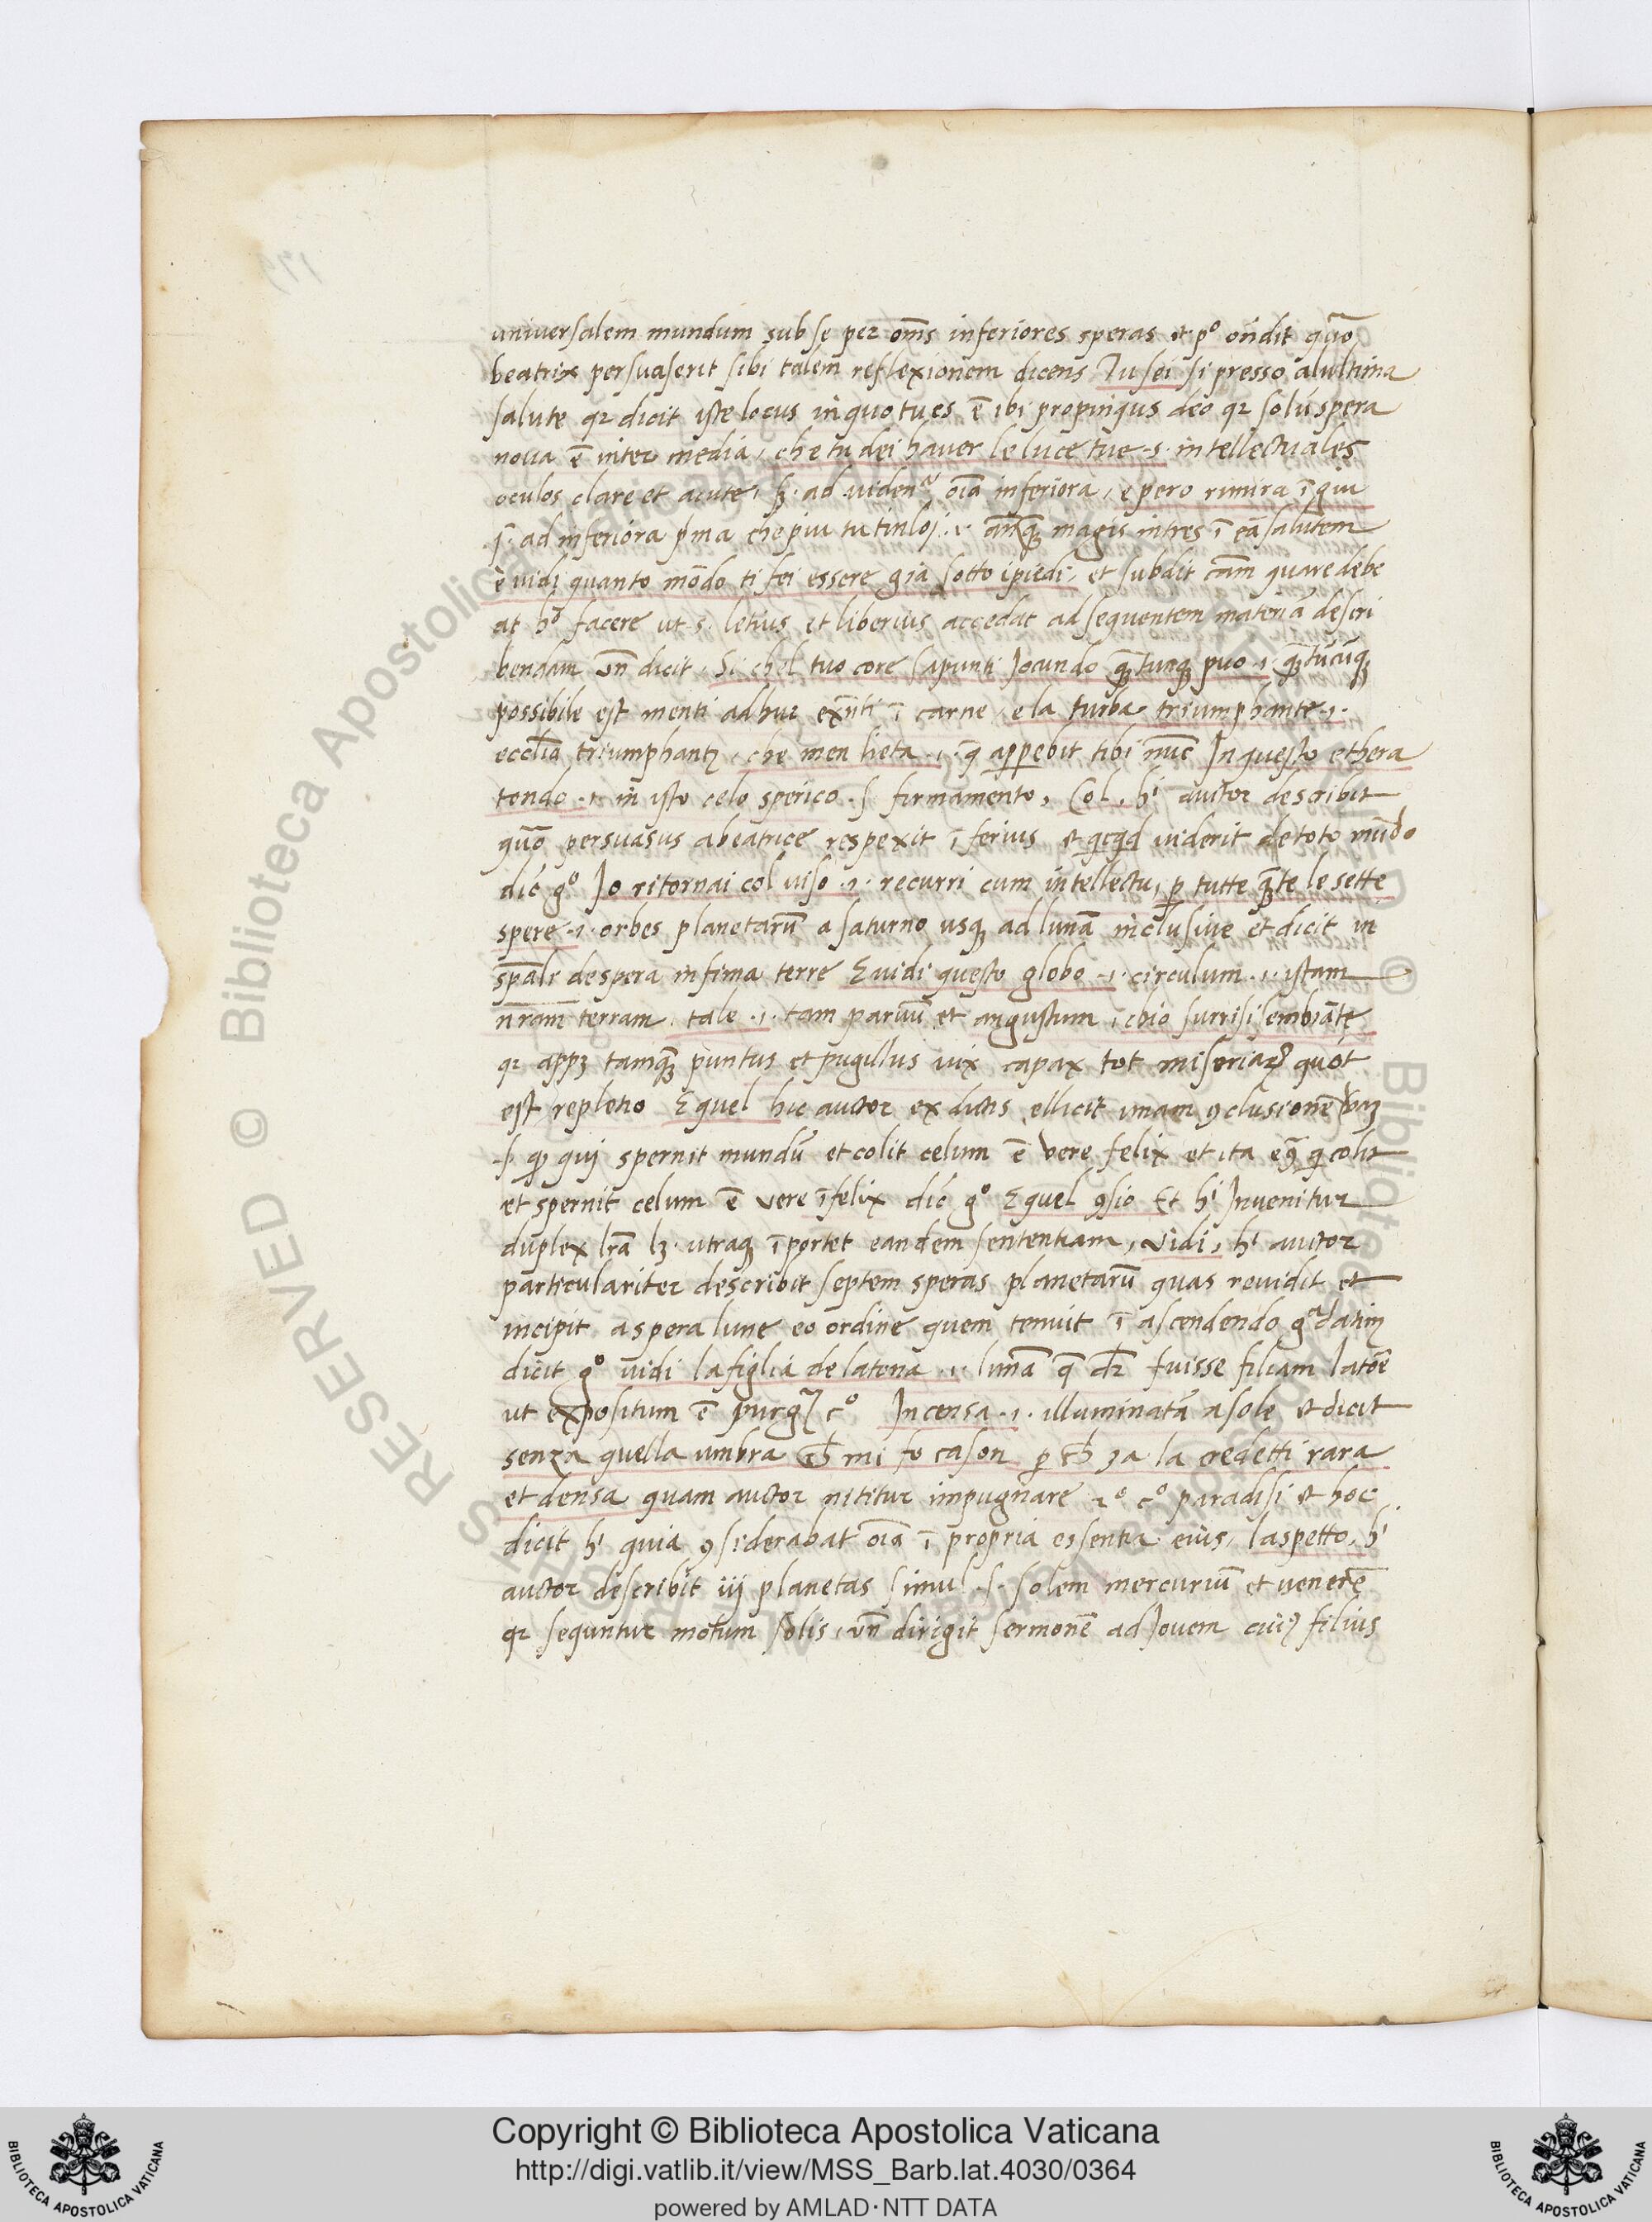 universalem mundum sub se per om̄s inferiores speras et pº on̄dit quō
beatrix persuaserit sibi talem reflexionem dicens Tu sei si presso alultima
salute qr dicit iste locus in quo tu es ē ibi propinqus deo qr solū spera
nona ē inter media, che tu dei haver le luce tue .s. intellectuales
oculos clare et acute, ad viden oīa inferiora, e pero rimira ī giu
.s. ad inferiora pma che piu tu tinloj .i. anq̄ magis intres ī eā salutem
e vidi quanto mōdo ti fei essere gia sotto ipiedi, et subdit cām quare debe
at hº facere ut s. letius et liberius accedat ad sequentem materiā descri
bendam un̄ dicit, Si chel tuo core sapunti Jocundo quātunq puo .i. quātūcūq
possibile est menti adhuc exn̄ti ī carne, e la turba triumphante .i.
eccl̄ia triumphantȝ, che men lieta .i. q̄ apparebit tibi nūc In questo ethera
tondo .i. in isto celo sperico .s. firmamento, Col, hⁱ auctor describit
quō persuasus abeatrice respexit īferius et qcqd viderit de toto mūdo
dic̄ gº Jo ritornai col viso .i. recurri cum intellectu, p tutte quāte le sette
spere .i. orbes planetarū a saturno usq ad lunā inclusive et dicit in
spāli de spera infima terre E vidi questo globo .i. circulum .i. istam
nr̄am terram, tale .i. tam parvū et angustum, chio surrisi sembiāte
qr appȝ tamq̄ puntus et pugillus vix capax tot miseriaꝝ quot
est repletio E quel hic auctor ex dictis ellicit unam ꝯclusionē
.s. ꝙ qui spernit mundū et colit celum ē vere felix et ita eꝯ qi colit
et spernit celum ē vere īfelix dic̄ gº E quel ꝯsio Et hⁱ Invenitur
duplex lr̄a lȝ utraq īportet eandem sententiam, Vidi, hⁱ auctor
particulariter describit septem speras planetarū quas revidit et
incipit aspera lune eo ordine quem tenuit ī ascendendo gradatim
dicit gº vidi la figlia de latona .i. lunā q̄ dr̄ fuisse filiam latōe
ut expositum ē purg cº Incensa .i. illuminatā a sole et dicit
senza quella umbra ch mi fo cason p ch ȝa la credetti rara
et densa quam auctor nititur impugnare 2º cº paradisi et hoc
dicit hⁱ quia ꝯsiderabat oīa ī propria essentia eius, laspetto, hⁱ
auctor describit iij planetas simul .s. solem mercuriū et venerē
qr sequntur motum solis, un̄ dirigit sermonē ad Jovem cuiꝯ filius
Copyright © Biblioteca Apostolica Vaticana
http://digi.vatlib.it/view/MSS_Barb.lat.4030/0364
powered by AMLAD·NTT DATA
BIBLIOTECA APOSTOLICA VATICANA
BIBLIOTECA APOSTOLICA VATICANA